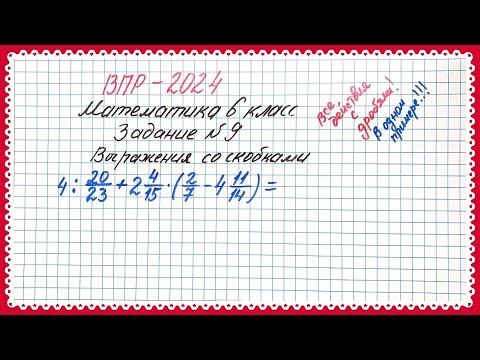 ВПР-2024
Математика 6 класс
Задание №9
Выражения со скобками
4 : 20/23 + 2 4/15 · (2/7 - 4 11/14) =
Все
действия
с
дробями!
В одном
примере!!!